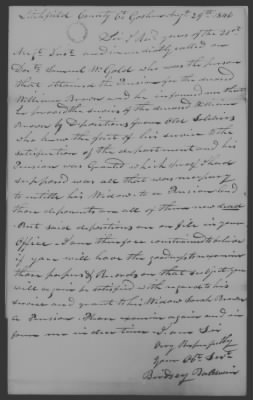 Litchfield County Ct Goshen Augt 29th 1846
Sir, I had yours of the 21st
Augt Inst. and immediately called on
Doct. Samuel W Gold who was the person
that obtained the Pension for the deceased
William Brown and he informed me that
he proved the service of the deceased William
Brown by Depositions from Old Soldiers
who knew the fact of his service to the
satisfaction of the department and his
Pension was Granted which proof I had
supposed was all that was necessary
to entitle his Widow to a Pension and
those deponents are all of them now dead
But said depositions are on file in your
Office. I am therefore constrained to believe
if you will have the goodness to examine
those papers & Records on that subject you
will again be satisfied with regard to his
service and grant to his Widow Sarah Brown
a Pension. Please examine again and in
form me in due time I am Sir
Very Respectfully
Your Obt. Servt.
Birdsey Baldwin